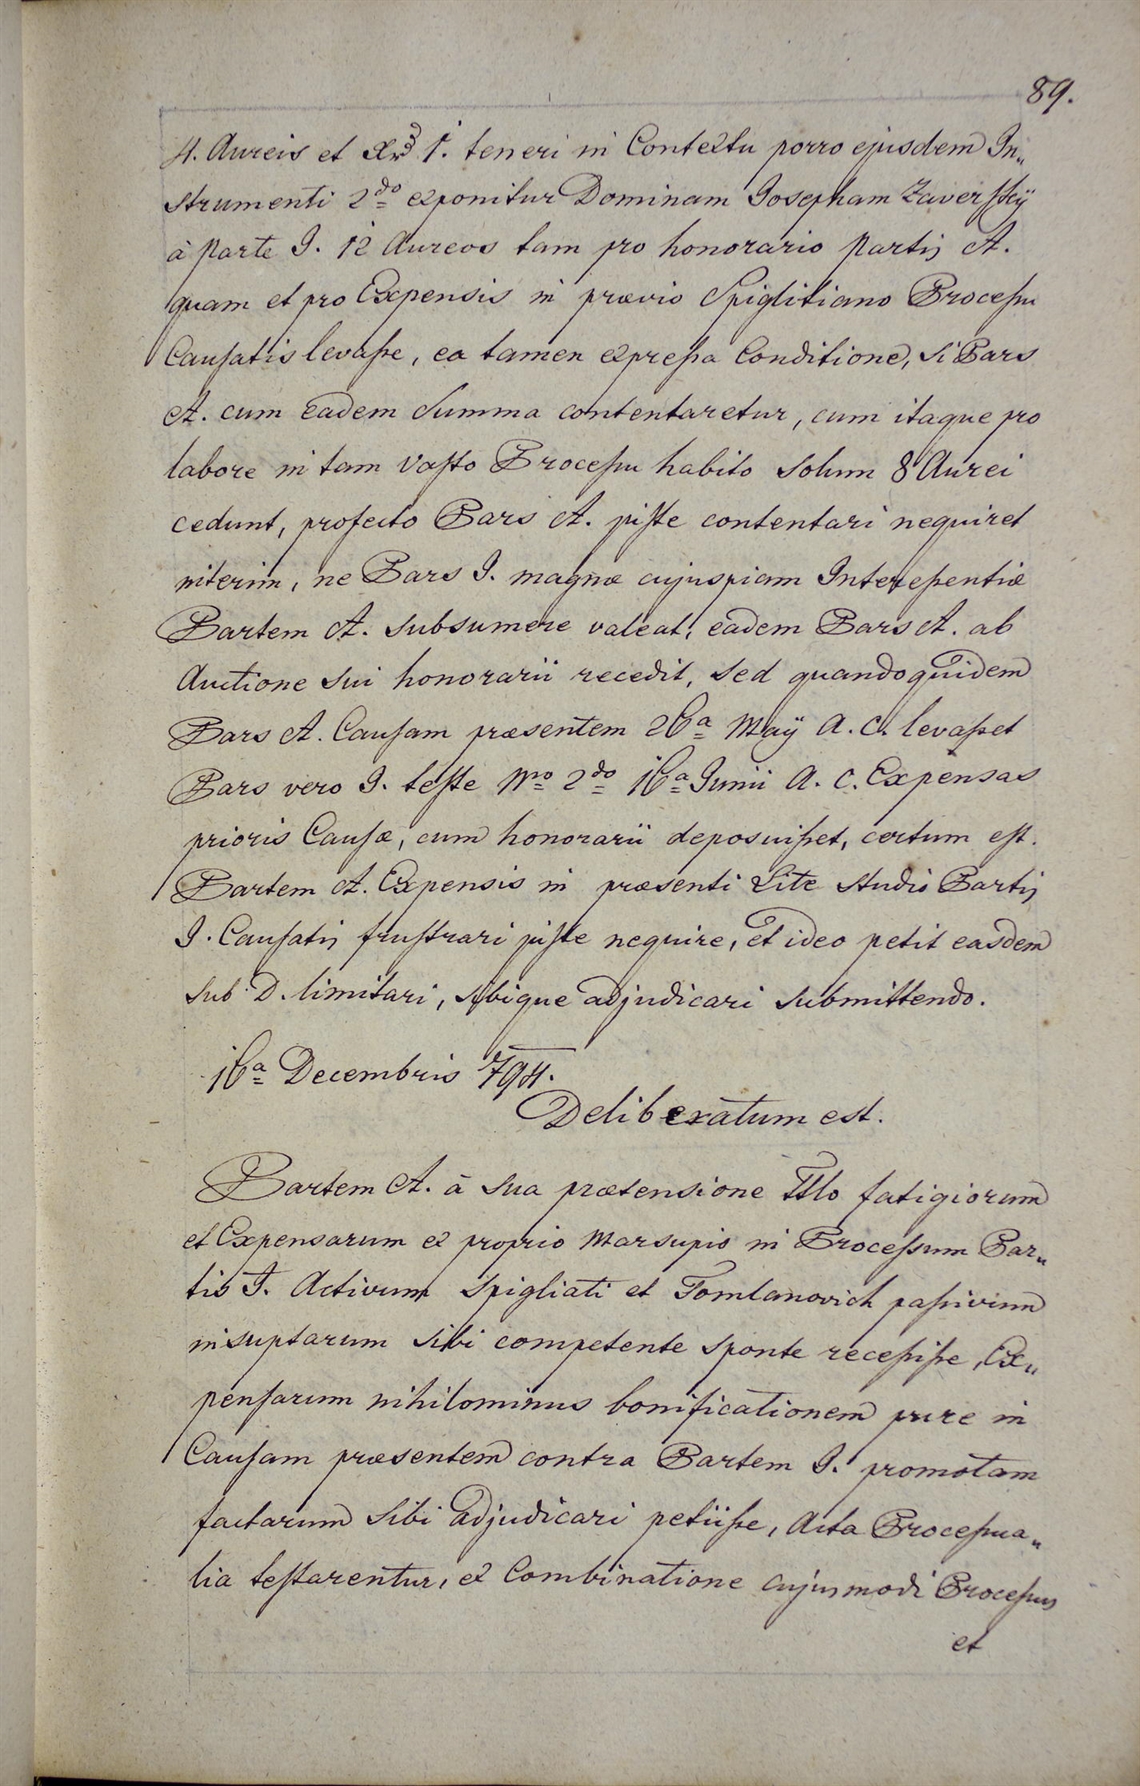 89.
4. Aureis et Xrd 1. teneri in Contextu porro ejusdem In„
strumenti 2do exponitur Dominam Josepham Zaverssky
à Parte I. 12 Aureos tam pro honorario Partis A.
quam et pro Expensis in prævio Spiglitiano Processu
Causatis levasse, ea tamen expressa Conditione, si Pars
A. cum eadem Summa contentaretur, cum itaque pro
labore in tam vasto Processu habito solum 8 Aurei
cedunt, profecto Pars A. juste contentari nequiret
interim, ne Pars I. magnæ cujuspiam Interessentiæ
Partem A. subsumere valeat, eadem Pars A. ab
Auctione sui honorarii recedit, sed quandoquidem
Pars A. Causam præsentem 26a Maÿ A. C. levasset
Pars vero I. teste Nro 2do 16a Junii A. C. Expensas
prioris Causæ, cum honorarii deposuisset, certum est.
Partem A. Expensis in præsenti Lite studio Partis
I. Causatis frustrari juste nequire, et ideo petit easdem
sub D. limitari, sibique adjudicari submittendo.
16a Decembris 794.
Deliberatum est.
Partem A. à sua prætensione Ttlo fatigiorum
et Expensarum ex proprio Marsupio in Processum Par„
tis I. Activum Spigliati et Tomlanovich passivum
insuptarum sibi competente sponte recessisse, Ex„
pensarum nihilominus bonificationem pure in
Causam præsentem contra Partem I. promotam
factarum sibi adjudicari petiisse, Acta Processua„
lia testarentur, ex Combinatione cujusmodi Processus
et